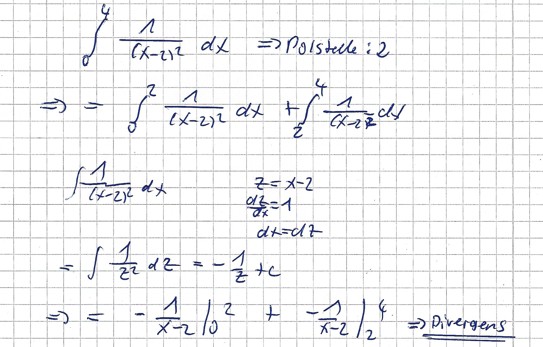 ∫₀⁴ 1/(x-2)² dx => Polstelle: 2
=> = ∫₀² 1/(x-2)² dx + ∫₂⁴ 1/(x-2)² dx
∫ 1/(x-2)² dx
z = x-2
dz/dx = 1
dx = dz
= ∫ 1/z² dz = - 1/z + c
=> = - 1/(x-2) |₀² + - 1/(x-2) |₂⁴ => Divergens